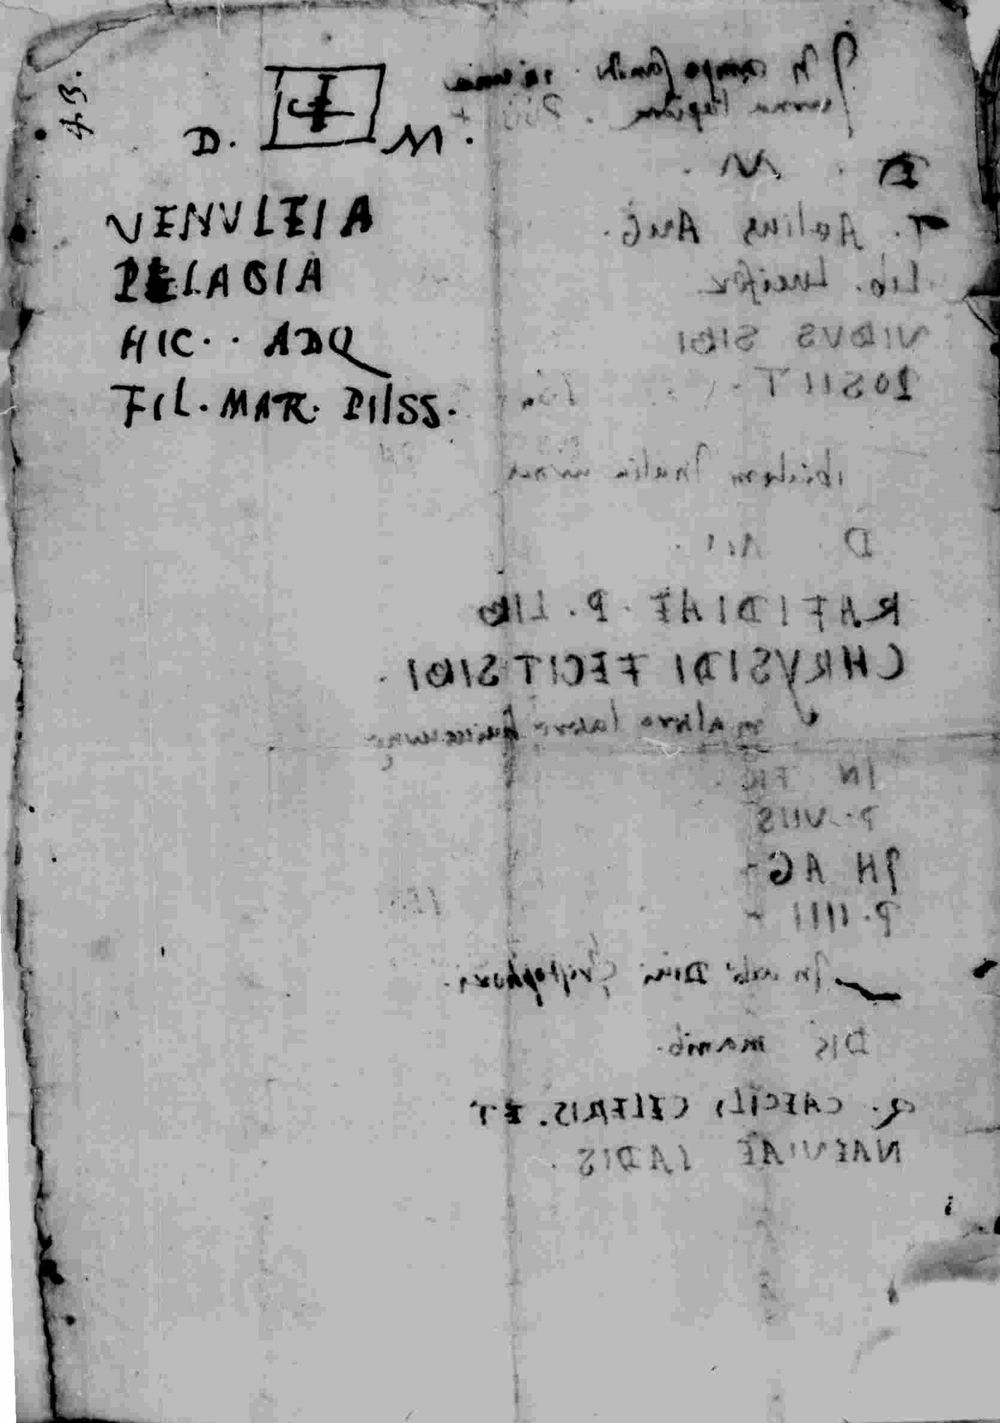 43.
D. M.
VENVLEIA
PELAGIA
HIC·· ADQ
FIL. MAR. PIISS.
D. M.
T. Aelius Aug.
Lib. Lucifer
VIBVS SIBI
POSIIT
ibidem
D. M.
RAFIDIAE · P. LIB
CHRYSIDI FECIT SIBI.
IN FR
P. VIIS
IN AG
P. IIII
DIS manib.
Q. CAECILI CELERIS. ET
NAEVIAE IADIS.